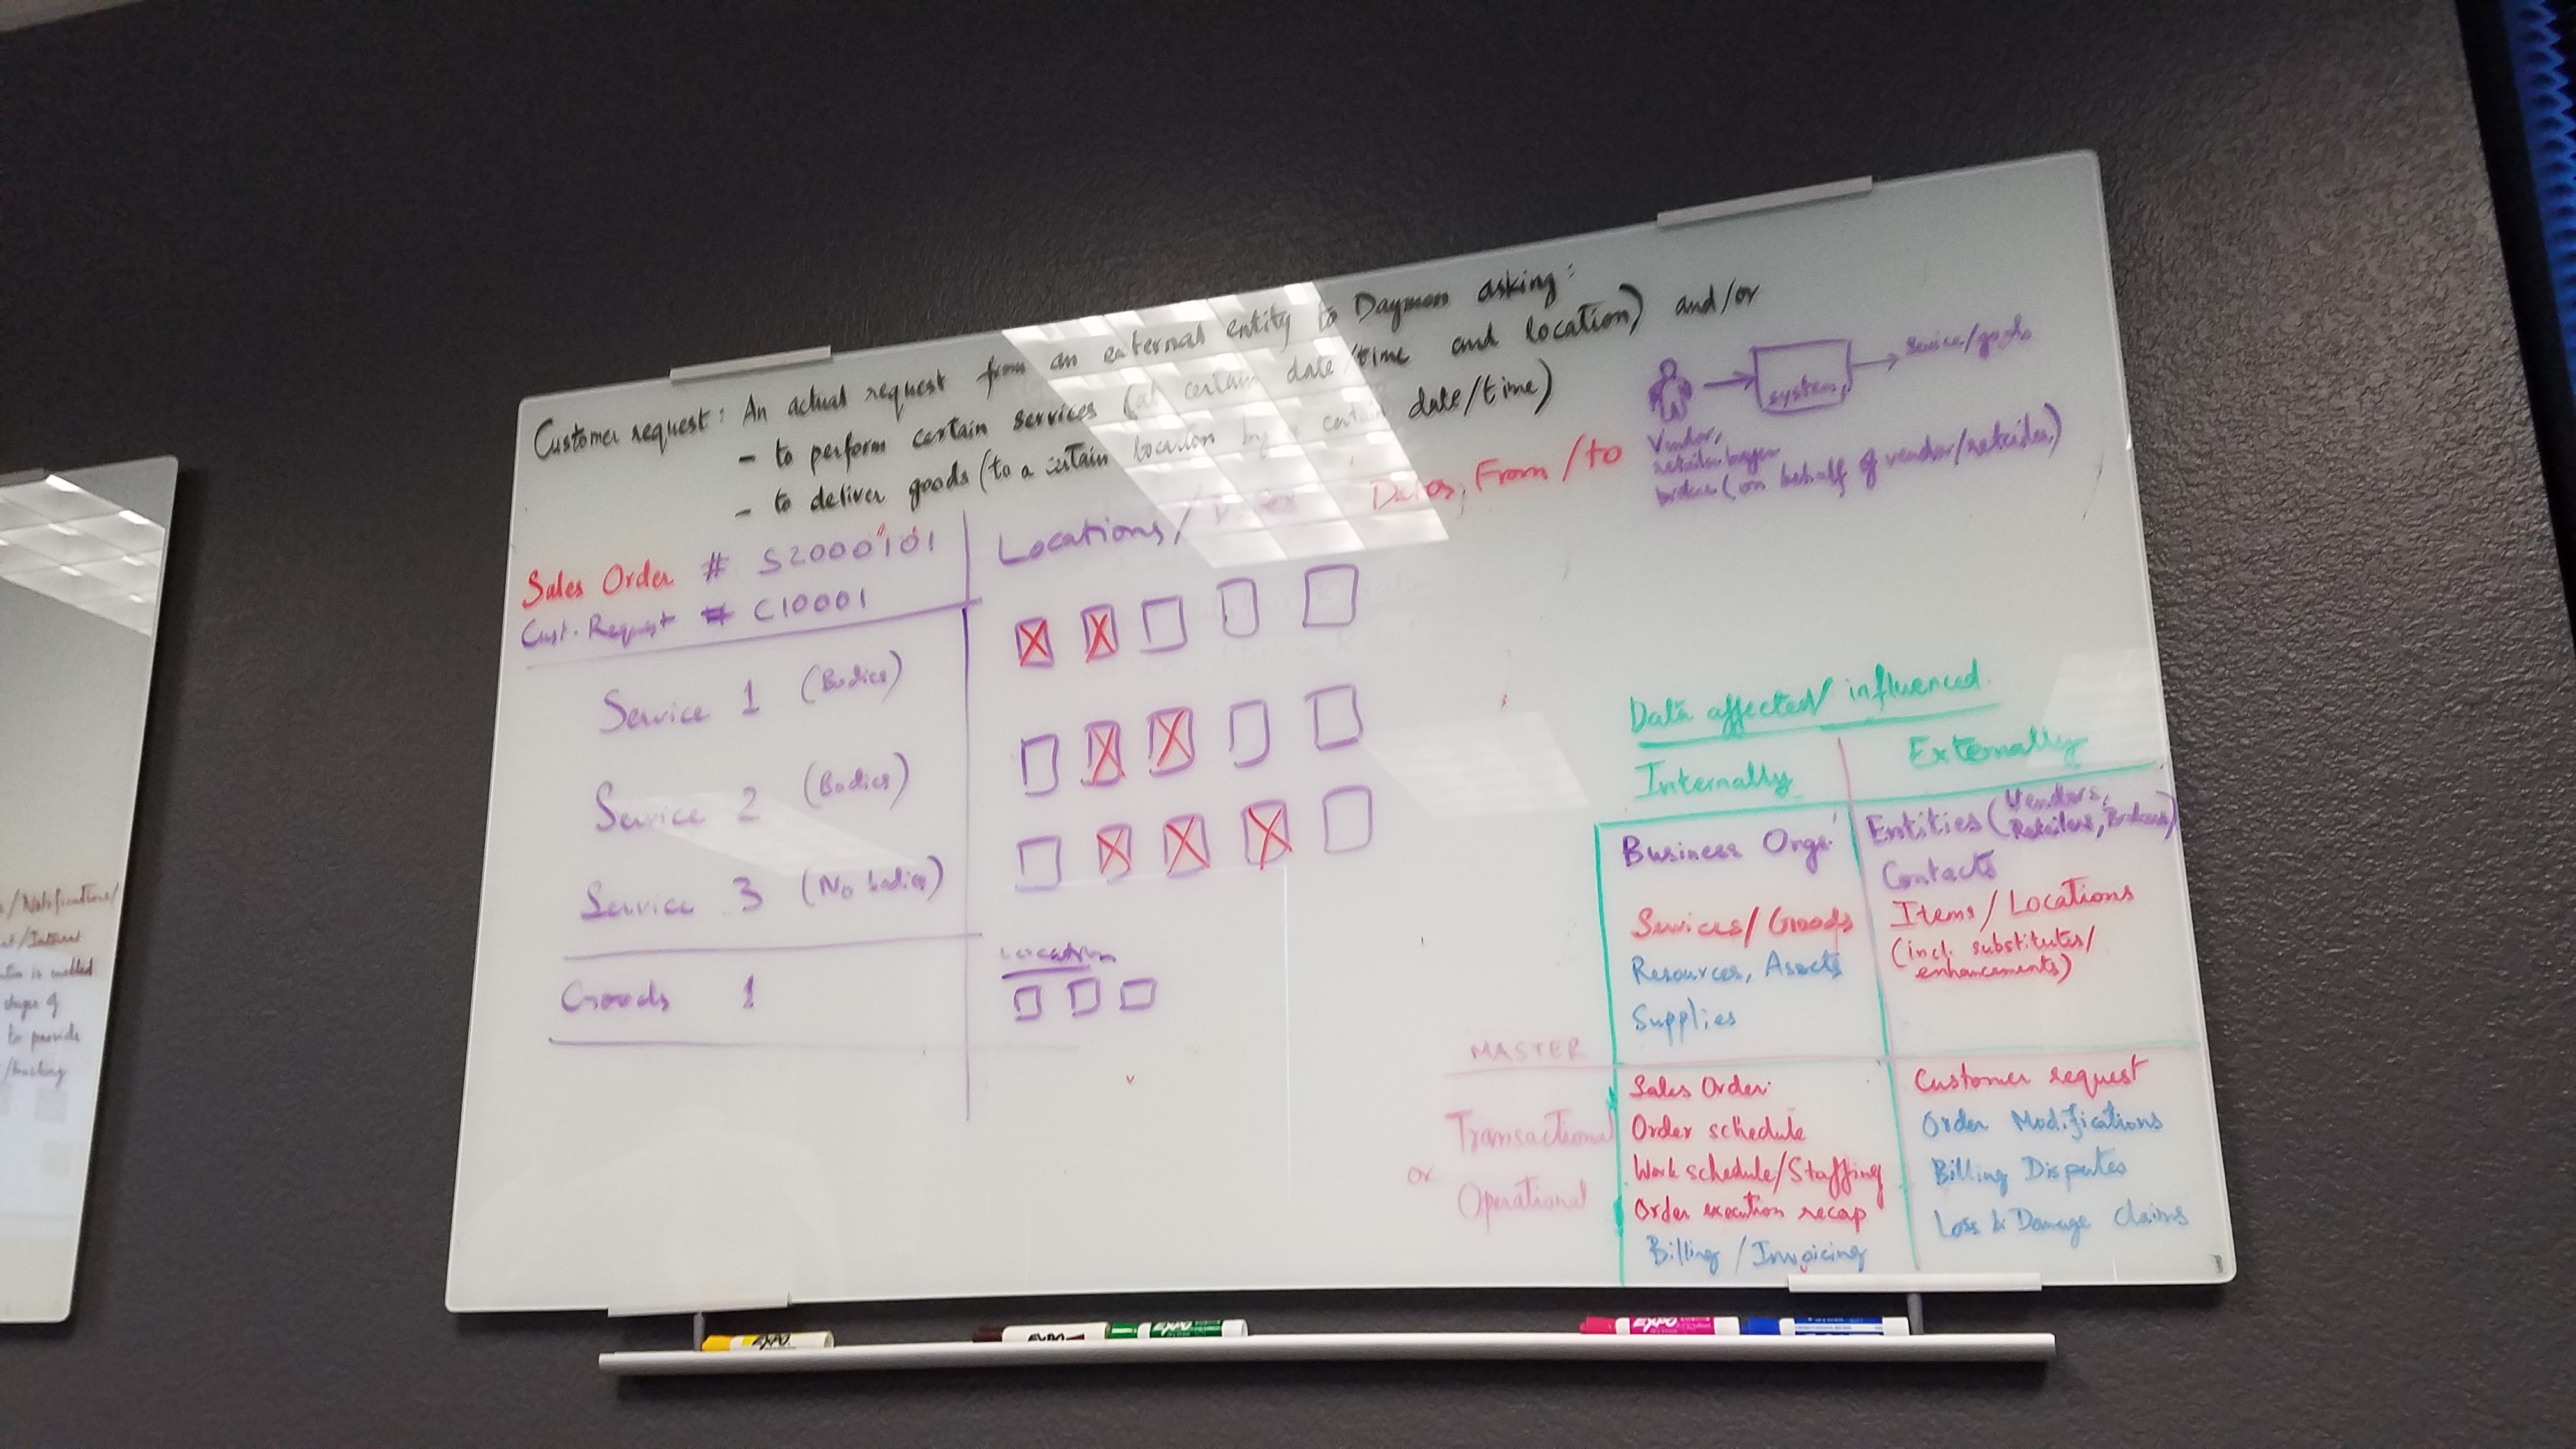 Customer request: An actual request from an external entity to Daymon asking:
- to perform certain services (at certain date/time and location) and/or
- to deliver goods (to a certain location by a certain date/time)
system
Service/goods
Vendor,
broker (on behalf of vendor/retailer)
Sales Order # S2000101
Cust. Request # C10001
Locations/
Dates, From/to
Service 1 (Bodies)
Service 2 (Bodies)
Service 3 (No bodies)
Location
Goods 1
Data affected/influenced
Internally
Externally
Business Orgs.
Services/Goods
Resources, Assets
Supplies
Entities (Vendors,
Retailers, Brokers)
Contacts
Items/Locations
(incl. substitutes/
enhancements)
MASTER
Transactional
or
Operational
Sales Order
Order schedule
Work schedule/Staffing
Order execution recap
Billing/Invoicing
Customer request
Order Modifications
Billing Disputes
Loss & Damage claims
/Notifications/
/Internet
is enabled
of
to provide
/tracking
EXPO
EXPO
EXPO
EXPO